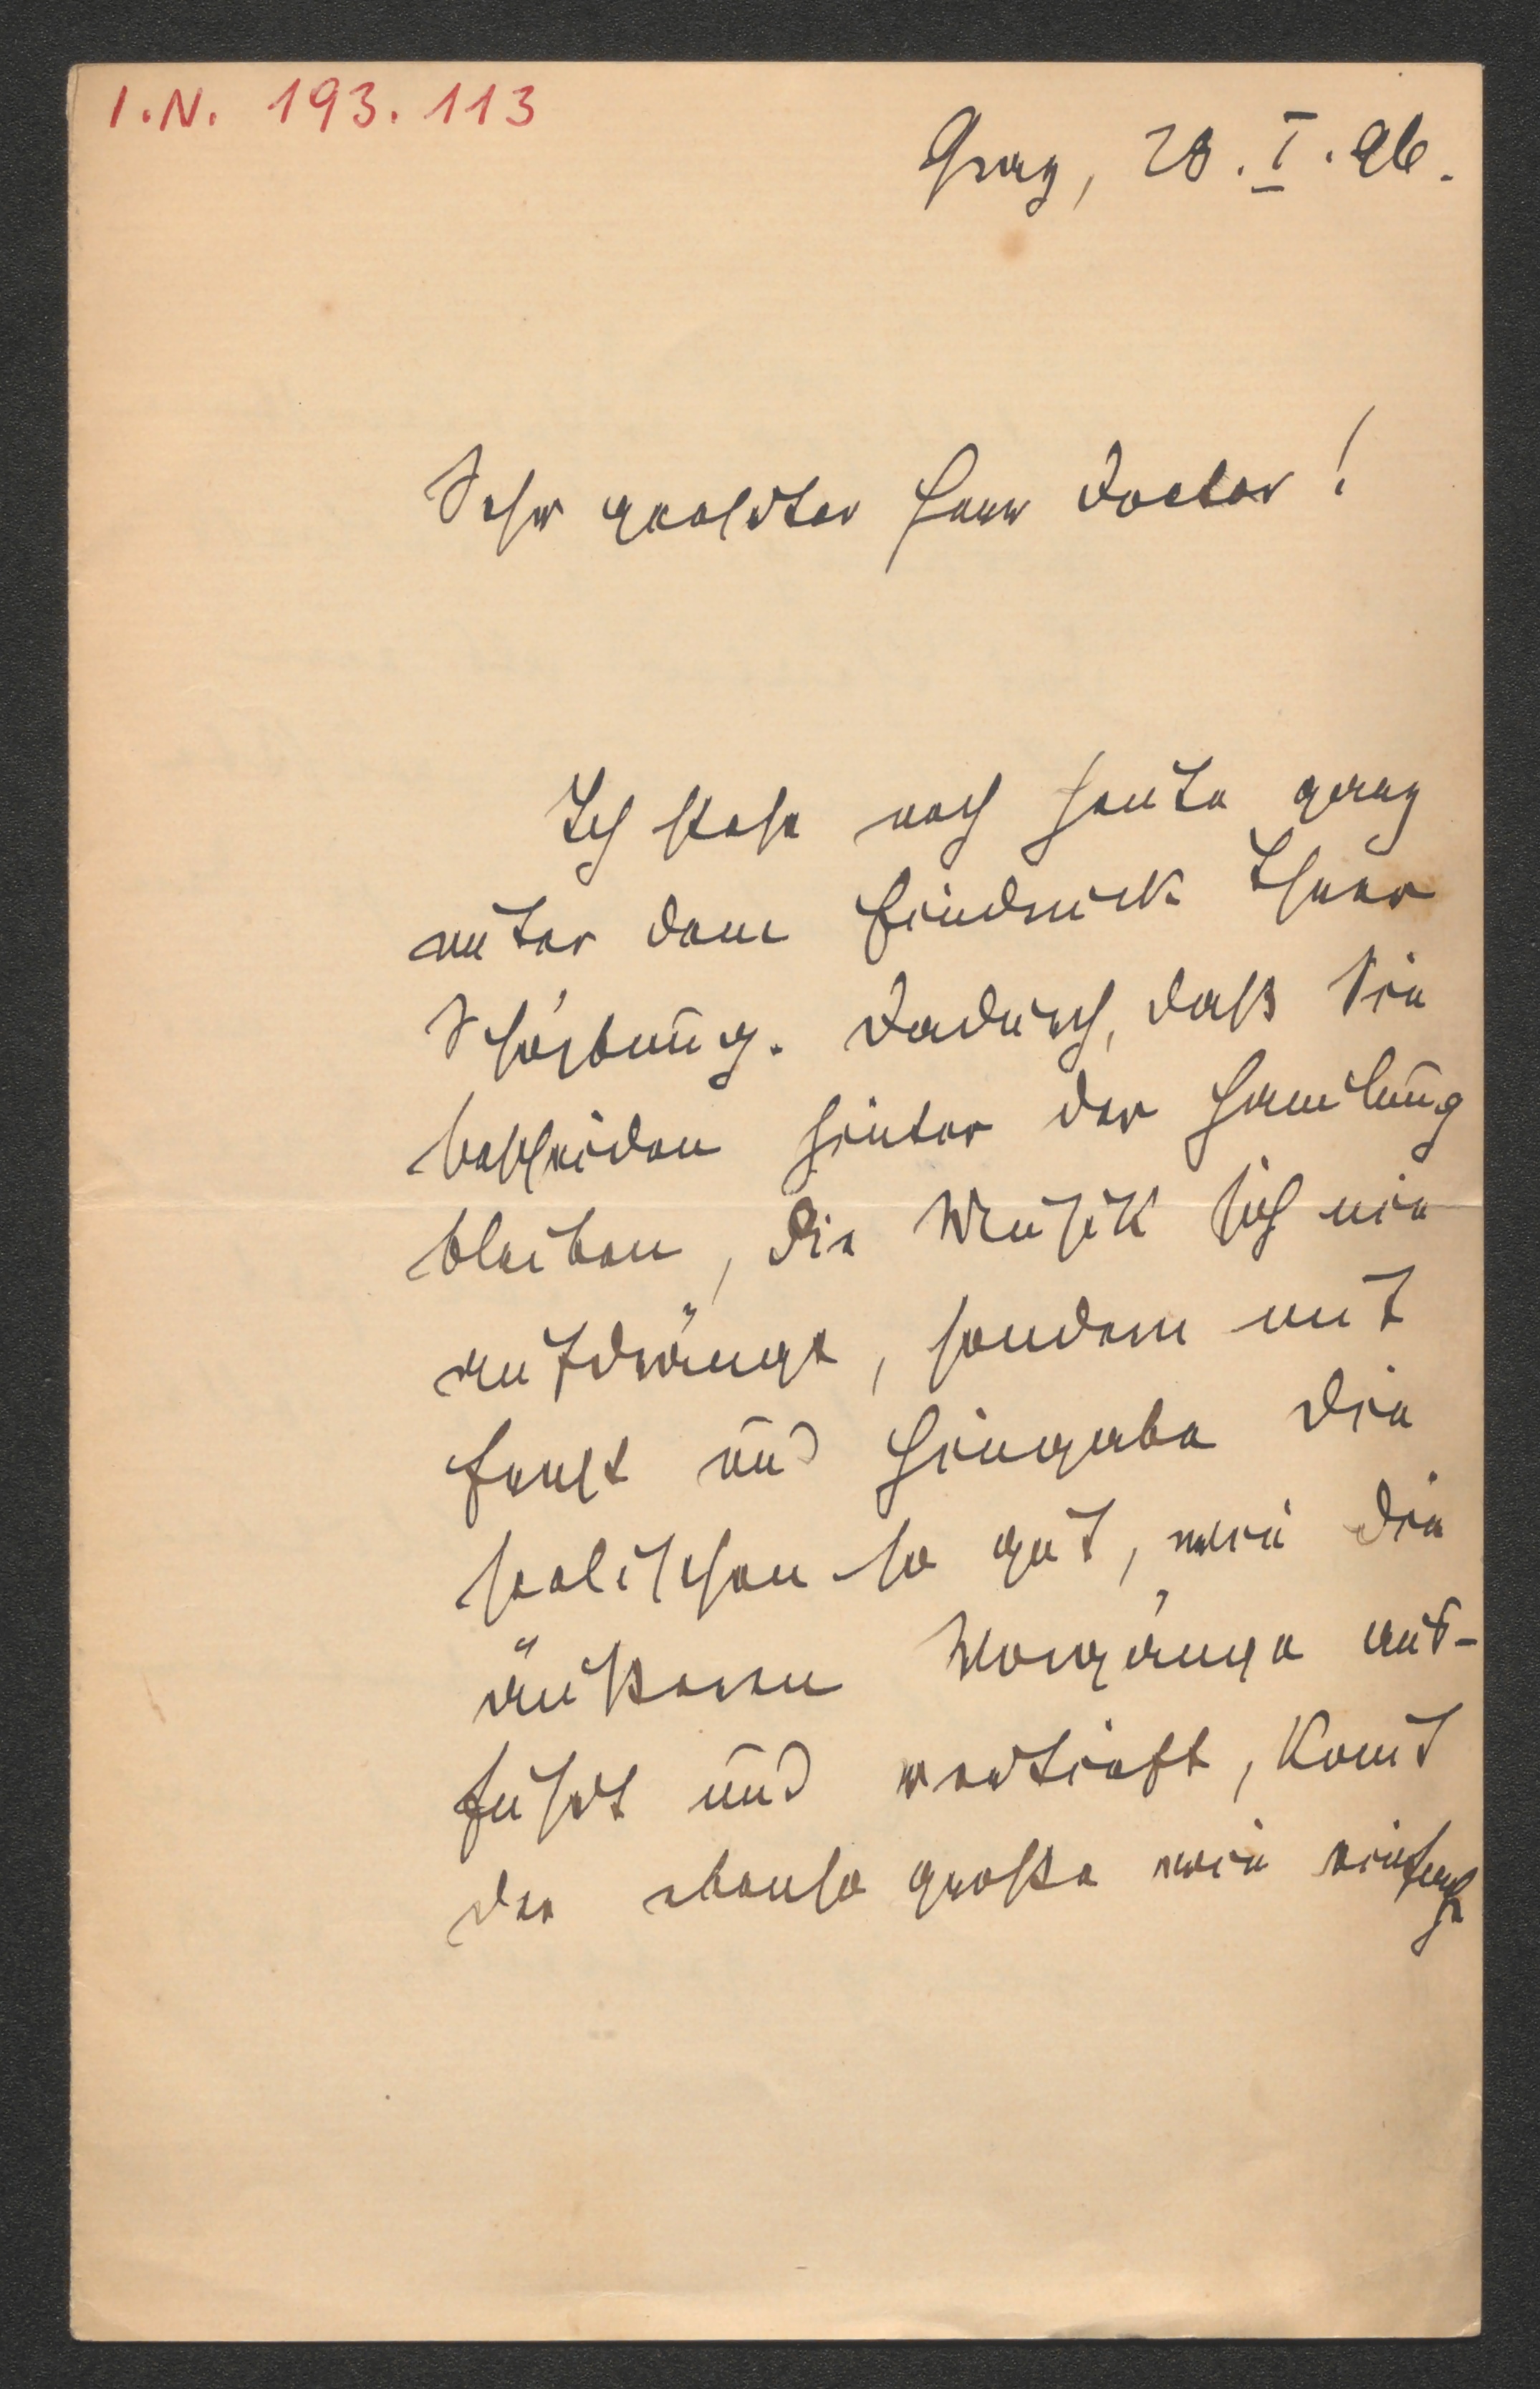 I.N. 193.113
Graz, 28. I. 96.
Sehr geehrter Herr Doctor!
Ich stehe noch heute ganz
unter dem Eindruck Ihrer
Schöpfung. Dadurch, daß Sie
bescheiden hinter der Handlung
bleiben, die Musik sich nie
aufdrängt, sondern mit
Ernst und Hingabe die
seelischen so gut, wie die
äußeren Vorgänge aus-
führt und vertieft, komt
der ebenso große wie einfache